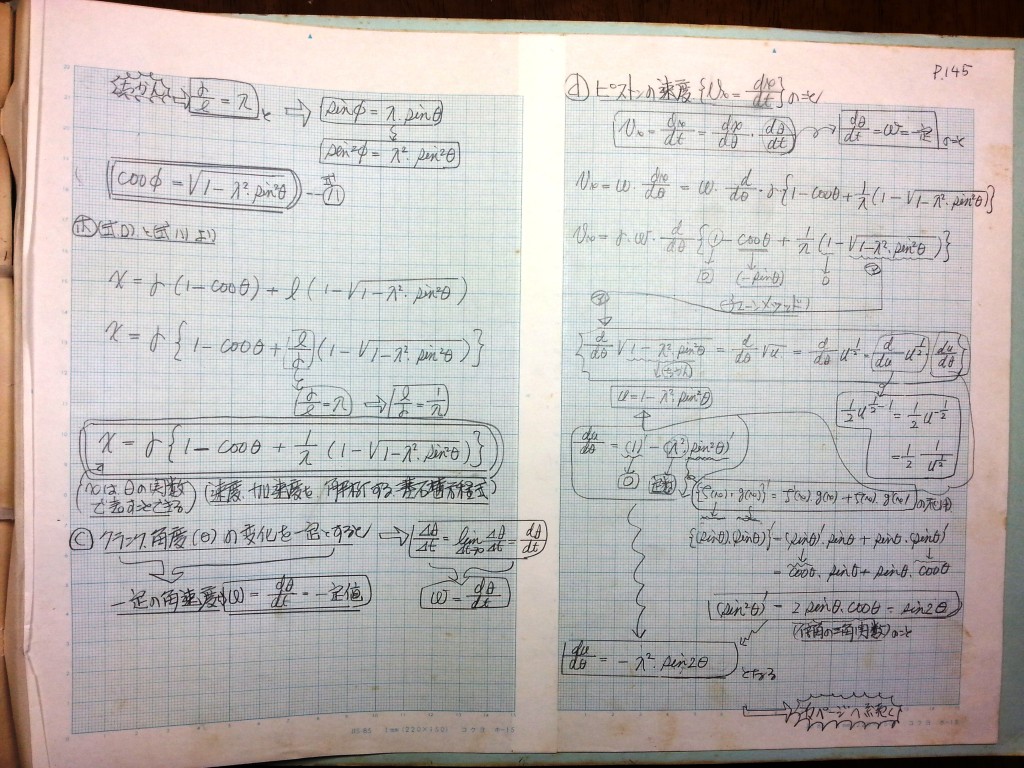 r/l = λ と ⇒ sinφ = λ・sinθ
sin²φ = λ²・sin²θ
cosφ = √(1-λ²・sin²θ) ―式
(式D)と式(ハ)より
x = r (1-cosθ) + l (1-√(1-λ²・sin²θ))
x = r {1-cosθ + l/r (1-√(1-λ²・sin²θ))}
r/l = λ → l/r = 1/λ
x = r {1-cosθ + 1/λ (1-√(1-λ²・sin²θ))}
(xはθの関数 (速度、加速度を解析する基石替方程式)
で表すことできる)
Ⓒ クランク角度(θ)の変化を一定とすると → Δθ/Δt = lim Δt→0 Δθ/Δt = dθ/dt
一定の角速度 ω = dθ/dt = 一定値 ω = dθ/dt
HS-85 1mm(220×160) コクヨ ホ-15
P.145
ⓓ ピストンの速度{v = dx/dt}のこと
v = dx/dt = dx/dθ・dθ/dt → dθ/dt = ω = 一定 のこと
v = ω・dx/dθ = ω・d/dθ・r・{1-cosθ + 1/λ (1-√(1-λ²・sin²θ))}
v = r・ω・d/dθ {1-cosθ + 1/λ (1-√(1-λ²・sin²θ))}
0 (-sinθ) 0
d/dθ √(1-λ²・sin²θ) = d/dθ √u = d/dθ u^½ = d/du u^½・du/dθ
u = 1-λ²・sin²θ
½u^(½-1) = ½u^(-½)
= ½・1/u^½
du/dθ = (1)' - (λ²・sin²θ)'
0
{f(x)・g(x)}' = f'(x)・g(x) + f(x)・g'(x) の応用
{(sinθ)・(sinθ)}' = (sinθ)'・sinθ + sinθ・(sinθ)'
= cosθ・sinθ + sinθ・cosθ
(sin²θ)' = 2sinθ・cosθ = sin2θ
(倍角の三角関数)のこと
du/dθ = -λ²・sin2θ となる
次ページへ続く
コクヨ ホ-15